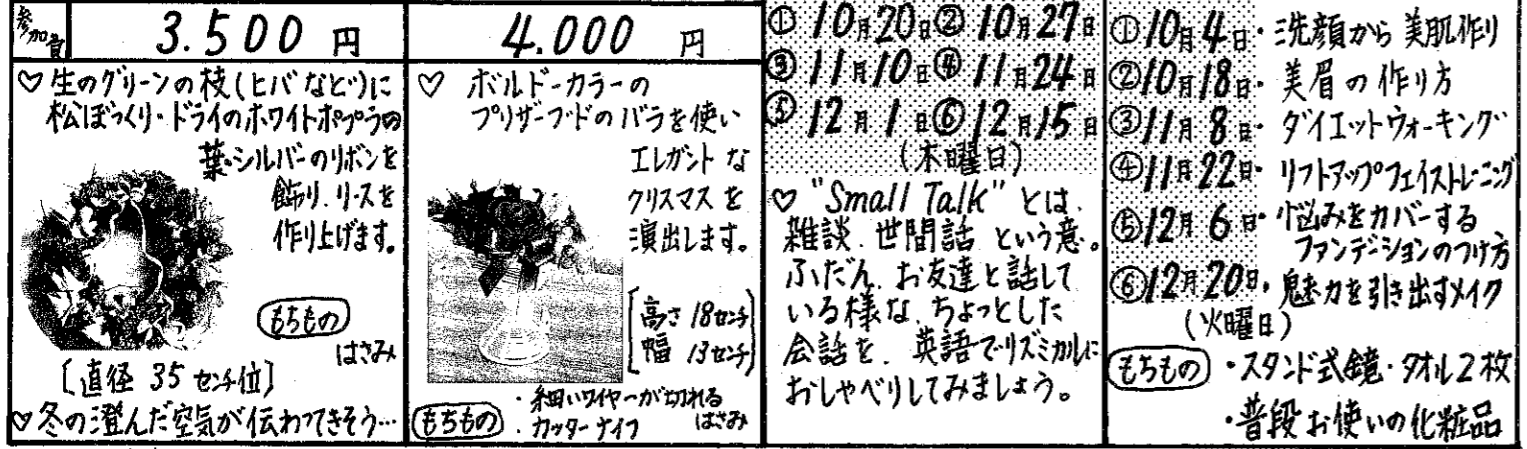 参加費
3.500円
♡生のグリーンの枝(ヒバなど)に
松ぼっくり・ドライのホワイトポプラの
葉・シルバーのリボンを
飾り、リースを
作り上げます。
もちもの
はさみ
[直径 35センチ位]
♡冬の澄んだ空気が伝わってきそう…
4.000円
♡ ボルドーカラーの
プリザーブドのバラを使い
エレガントな
クリスマスを
演出します。
高さ 18センチ
幅 13センチ
もちもの
・細いワイヤーが切れる
はさみ
・カッターナイフ
①10月20日②10月27日
③11月10日④11月24日
⑤12月1日⑥12月15日
(木曜日)
♡"Small Talk"とは、
雑談、世間話という意。
ふだん、お友達と話して
いる様な、ちょっとした
会話を、英語でリズミカルに
おしゃべりしてみましょう。
①10月4日・洗顔から美肌作り
②10月18日・美眉の作り方
③11月8日・ダイエットウォーキング
④11月22日・リフトアップフェイストレーニング
⑤12月6日・悩みをカバーする
ファンデーションのつけ方
⑥12月20日・魅力を引き出すメイク
(火曜日)
もちもの・スタンド式鏡・タオル2枚
・普段お使いの化粧品